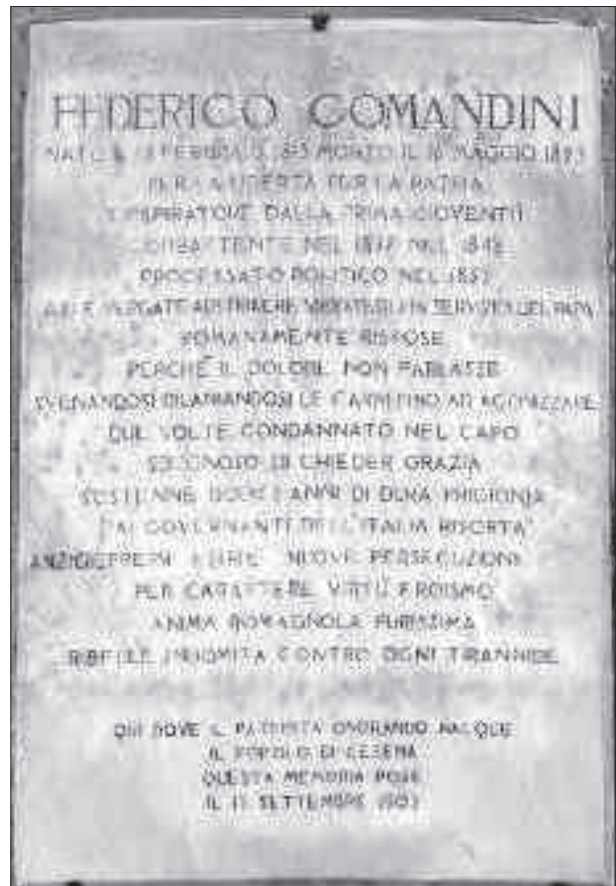 FEDERICO COMANDINI
NATO IL FEBBRAIO MORTO IL MAGGIO 1893
PER LA LIBERTÀ PER LA PATRIA
COSPIRATORE DALLA PRIMA GIOVENTÙ
COMBATTENTE NEL NEL 1848
PROCESSATO POLITICO NEL
ALLE VERGATE AUSTRIACHE IN SERVIZIO DEL PAPA
ROMANAMENTE RISPOSE
PERCHÉ IL DOLORE NON PARLASSE
SVENANDOSI DILANIANDOSI LE CARNI FINO AD AGONIZZARE
DUE VOLTE CONDANNATO NEL CAPO
SDEGNOSO DI CHIEDER GRAZIA
SOSTENNE DODICI ANNI DI DURA PRIGIONIA
DAI GOVERNANTI DELL'ITALIA RISORTA
NUOVE PERSECUZIONI
PER CARATTERE VIRTÙ EROISMO
ANIMA ROMAGNOLA PURISSIMA
RIBELLE INDOMITA CONTRO OGNI TIRANNIDE
QUI DOVE IL PATRIOTA ONORANDO NACQUE
IL POPOLO DI CESENA
QUESTA MEMORIA POSE
IL SETTEMBRE